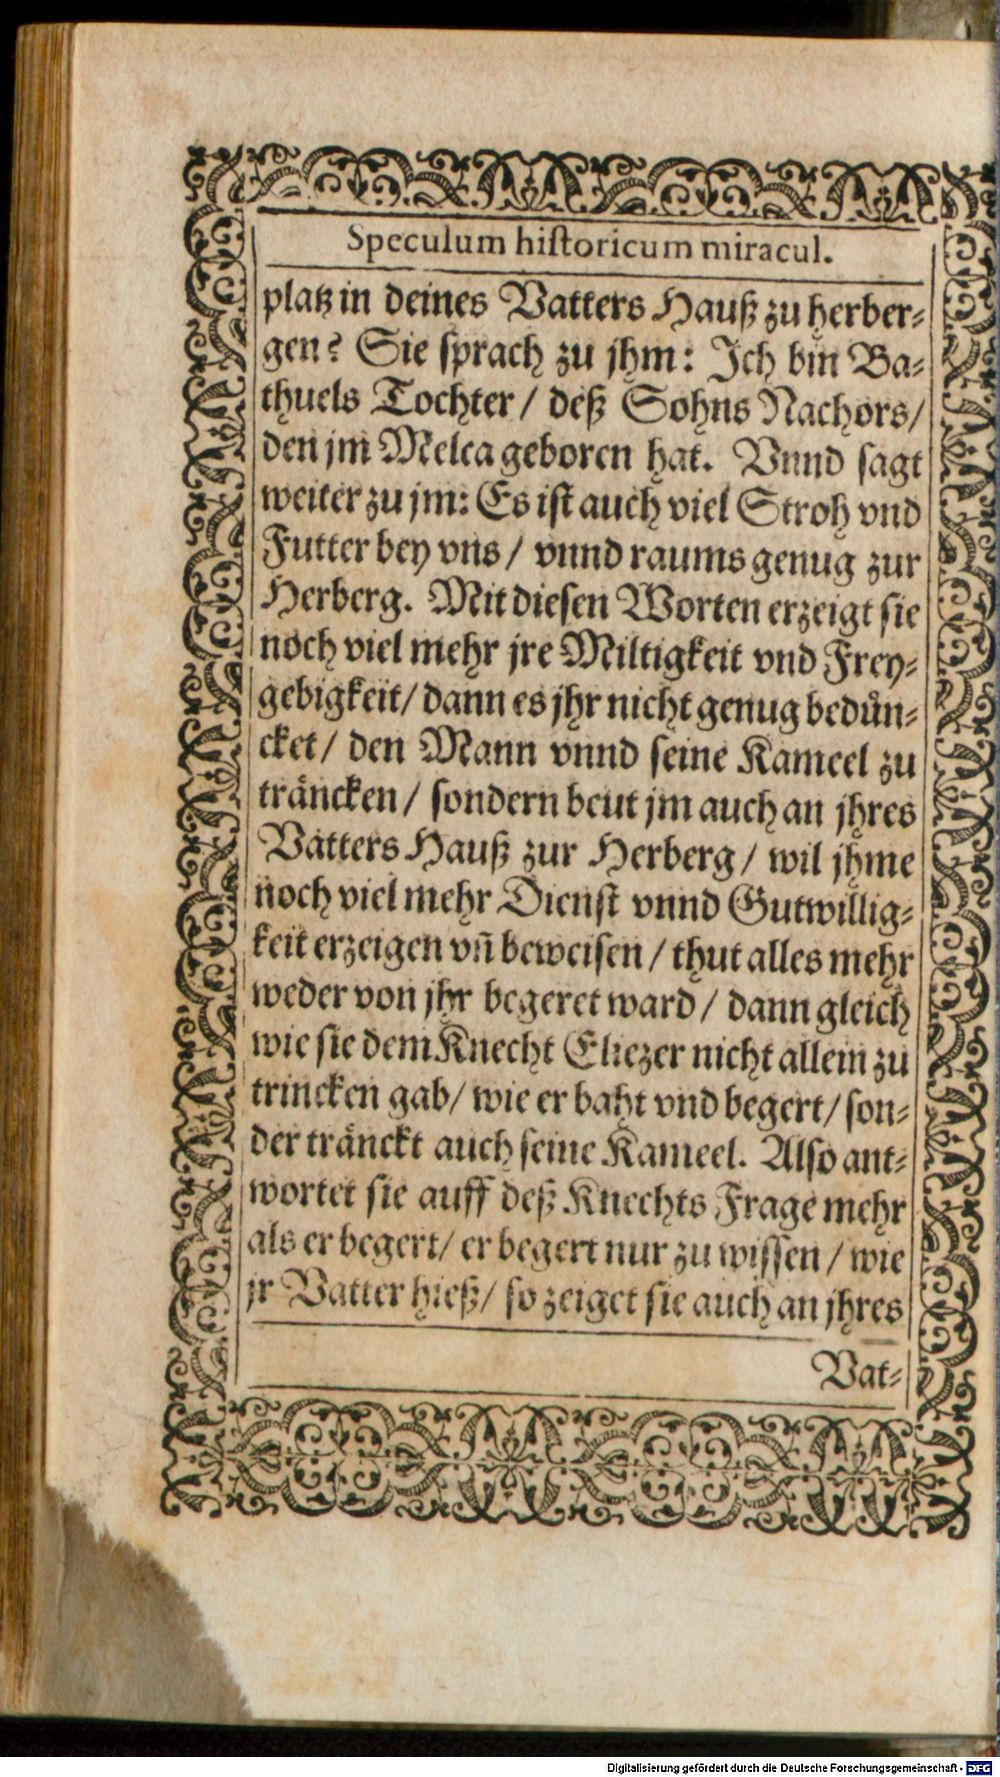 Speculum historicum miracul.
platz in deines Vatters Hauß zu herber-
gen? Sie sprach zu jhm: Ich bin Ba-
thuels Tochter / deß Sohns Nachors /
den jm Melca geboren hat. Vnnd sagt
weiter zu jm: Es ist auch viel Stroh vnd
Futter bey vns / vnnd raums genug zur
Herberg. Mit diesen Worten erzeigt sie
noch viel mehr jre Miltigkeit vnd Frey-
gebigkeit / dann es jhr nicht genug beduͤn-
cket / den Mann vnnd seine Kameel zu
traͤncken / sondern beut jm auch an jhres
Vatters Hauß zur Herberg / wil jhme
noch viel mehr Dienst vnnd Gutwillig-
keit erzeigen vñ beweisen / thut alles mehr
weder von jhr begeret ward / dann gleich
wie sie dem Knecht Eliezer nicht allein zu
trincken gab / wie er baht vnd begert / son-
der traͤnckt auch seine Kameel. Also ant-
wortet sie auff deß Knechts Frage mehr
als er begert / er begert nur zu wissen / wie
jr Vatter hieß / so zeiget sie auch an jhres
Vat-
Digitalisierung gefördert durch die Deutsche Forschungsgemeinschaft - DFG